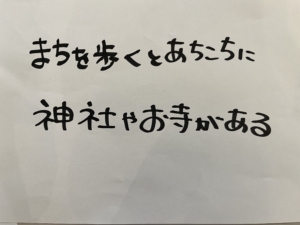 まちを歩くとあちこちに
神社やお寺がある